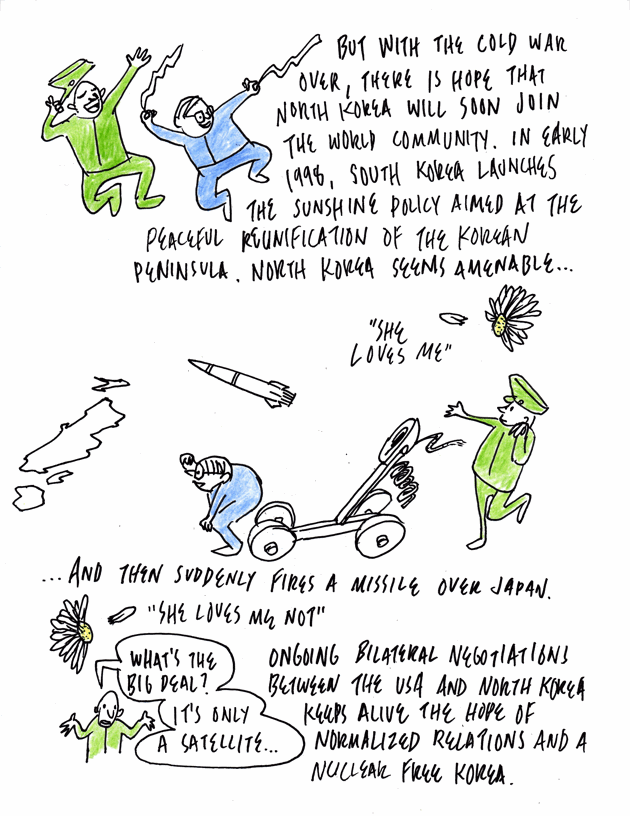 BUT WITH THE COLD WAR
OVER, THERE IS HOPE THAT
NORTH KOREA WILL SOON JOIN
THE WORLD COMMUNITY. IN EARLY
1998, SOUTH KOREA LAUNCHES
THE SUNSHINE POLICY AIMED AT THE
PEACEFUL REUNIFICATION OF THE KOREAN
PENINSULA. NORTH KOREA SEEMS AMENABLE...
"SHE
LOVES ME"
...AND THEN SUDDENLY FIRES A MISSILE OVER JAPAN.
"SHE LOVES ME NOT"
WHAT'S THE
BIG DEAL?
IT'S ONLY
A SATELLITE...
ONGOING BILATERAL NEGOTIATIONS
BETWEEN THE USA AND NORTH KOREA
KEEPS ALIVE THE HOPE OF
NORMALIZED RELATIONS AND A
NUCLEAR FREE KOREA.